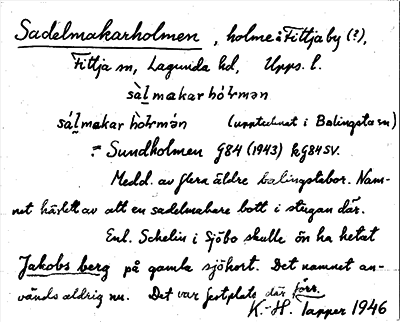 Sadelmakarholmen, holme å Fittja by (?),
Fittja sn, Lagunda hd, Upps. l.
sà̀lmakarhòlman
sálmakarhòlmán (upptecknat i Balingsta sn)
= Sundholmen g84 (1943) kg84SV.
Medd. av flera äldre balingstabor. Nam-
net härlett av att en sadelmakare bott i stugan där.
Enl. Schelin i Sjöbo skulle ön ha hetat
Jakobsberg på gamla sjökort. Det namnet an-
vänds aldrig nu. Det var festplats där förr.
K.-H. Tapper 1946